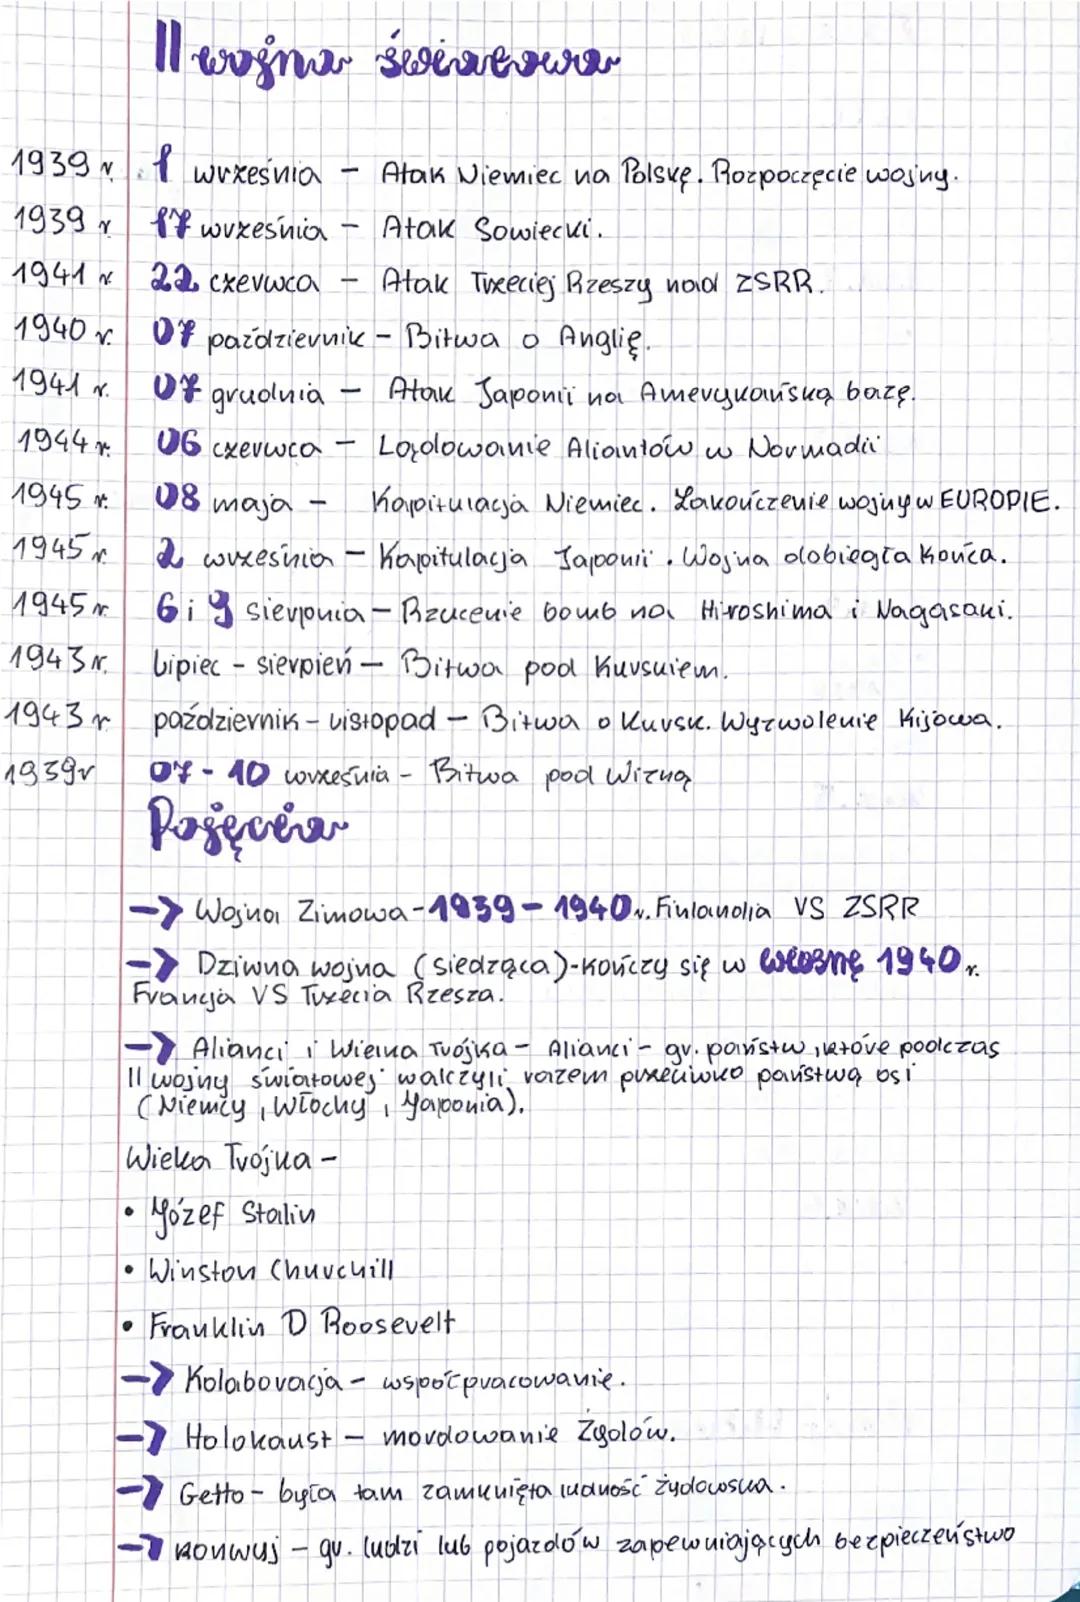 II wojna światowa
1939 r. 1 września – Atak Niemiec na Polskę. Rozpoczęcie wojny.
1939 r 17 września – Atak Sowiecki.
1941 r 22 czerwca – Atak Trzeciej Rzeszy nad ZSRR.
1940 r. 07 październik – Bitwa o Anglię.
1941 r. 07 grudnia – Atak Japonii na Amerykańską bazę.
1944 r. 06 czerwca – Lądowanie Aliantów w Normadii
1945 r. 08 maja – Kapitulacja Niemiec. Zakończenie wojny w EUROPIE.
1945 r. 2 września – Kapitulacja Japonii. Wojna dobiegła końca.
1945 r. 6 i 9 sierpnia – Rzucenie bomb na Hiroshima i Nagasaki.
1943 r. lipiec – sierpień – Bitwa pod Kurskiem.
1943 r październik – listopad – Bitwa o Kursk. Wyzwolenie Kijowa.
1939r 07 - 10 września – Bitwa pod Wizną
Pojęcia
-> Wojna Zimowa - 1939 - 1940 r. Finlandia VS ZSRR
-> Dziwna wojna (siedząca) - kończy się w wiosnę 1940 r.
Francja VS Trzecia Rzesza.
-> Alianci i Wielka Trójka – Alianci – gr. państw, które podczas
II wojny światowej walczyli razem przeciwko państwą osi
(Niemcy, Włochy, Japonia).
Wielka Trójka –
• Józef Stalin
• Winston Churchill
• Franklin D Roosevelt
-> Kolaboracja – współpracowanie.
-> Holokaust – mordowanie Żydów.
-> Getto – była tam zamknięta ludność żydowska.
-> konwuj – gr. ludzi lub pojazdów zapewniających bezpieczeństwo